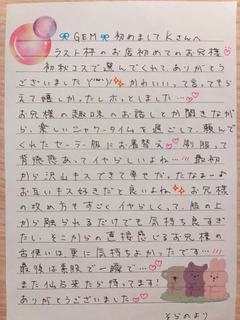 GEM 初めまして Kさんへ
ラスト枠のお店初めてのお兄様
初秋コスで選んでくれてありがとう
ございました
かわいいって言ってもら
えて嬉しかったしホッとしました…
お兄様の趣味のお話しとか聞きなが
ら、楽しいシャワータイムを過ごして、頼んで
くれたセーラー服にお着替え 制服って
背徳感あってイヤらしいよね… 最初
から沢山キスできて幸せだったなぁ
お互いキス好きだと良いよね お兄様
の攻め方もすごくイヤらしくて、服の上
から触られるだけでも気持ち良すぎ
たい そこからの直接感じるお兄様の
舌使いは、更に気持ちよかったです…
最後は素股で一緒で…
また仙台来たら待ってます!
ありがとうございました
そらのより